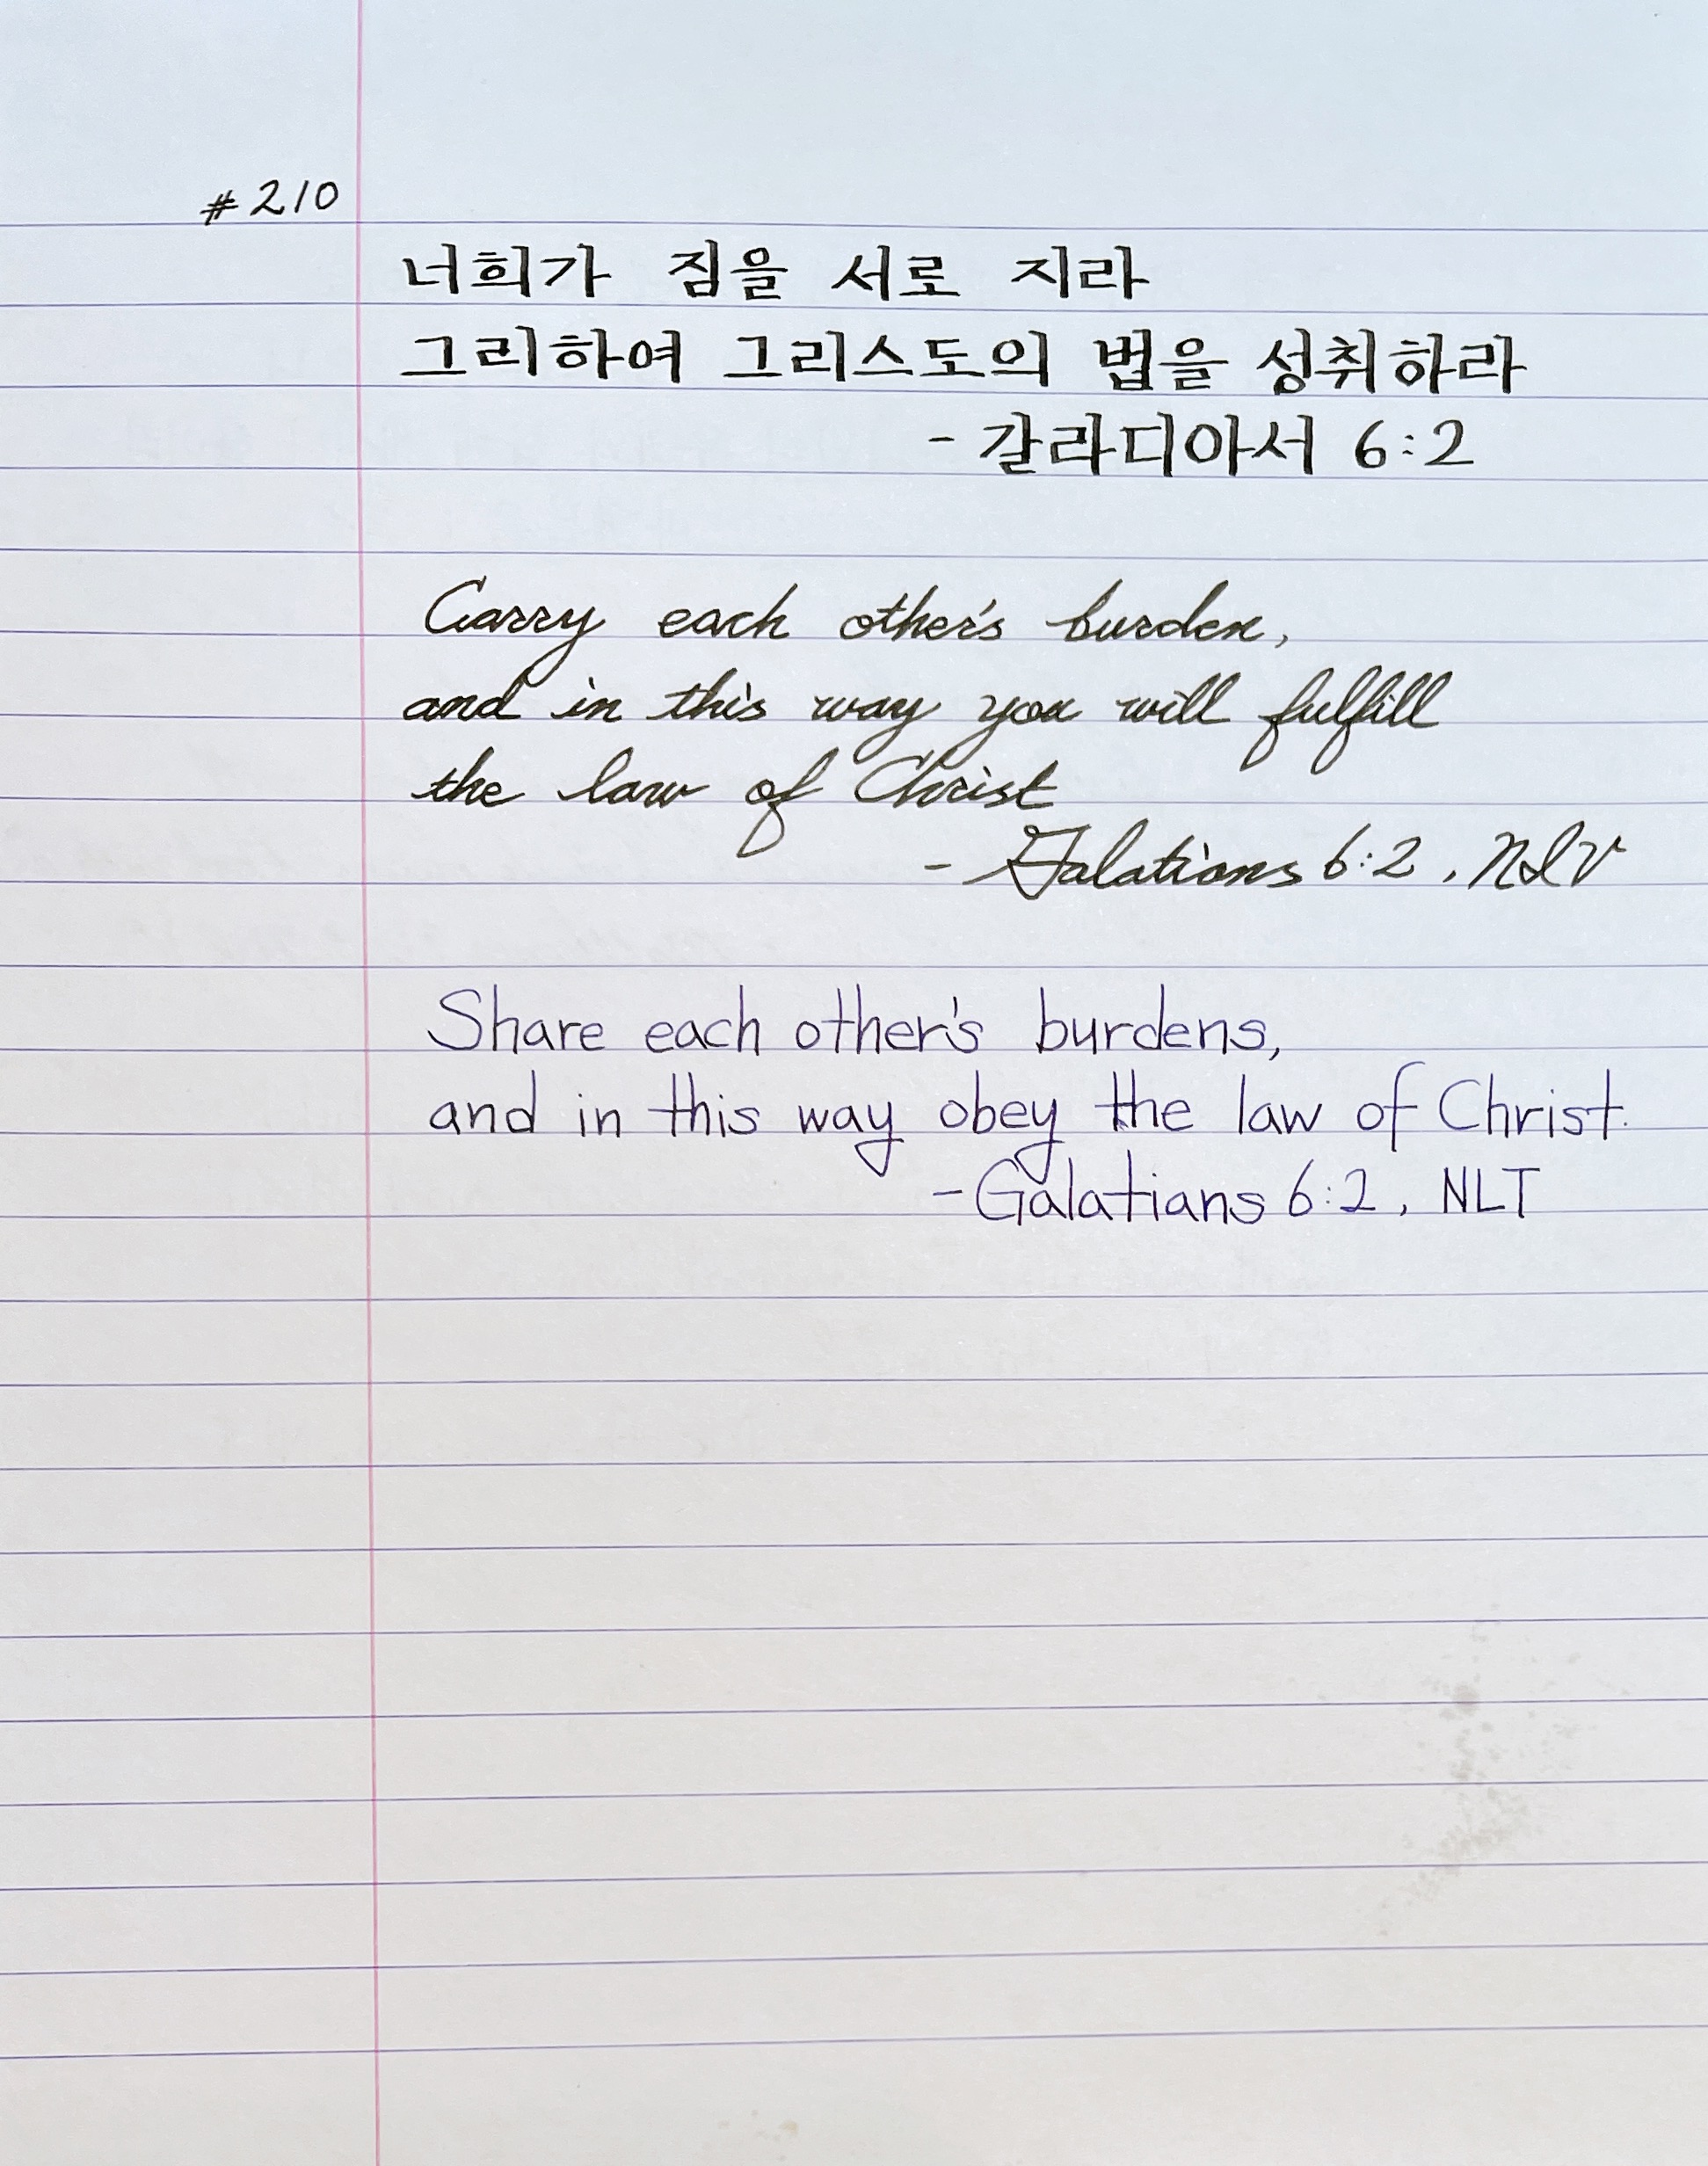 #210
너희가 짐을 서로 지라
그리하여 그리스도의 법을 성취하라
- 갈라디아서 6:2
Carry each other's burden,
and in this way you will fulfill
the law of Christ
- Galations 6:2, NIV
Share each other's burdens,
and in this way obey the law of Christ.
- Galatians 6:2, NLT